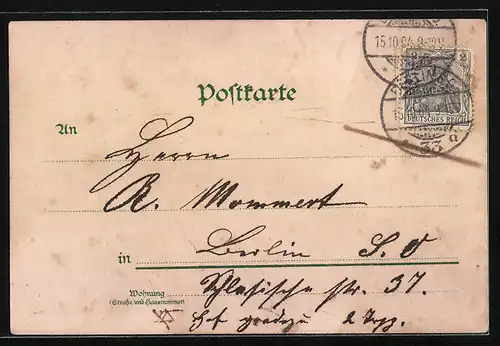 15.10.04.8-9V.
2
DEUTSCHES REICH
33 a
Postkarte
An
Herrn
R. Mommert
in Berlin S. O
Wohnung
(Straße und Hausnummer)
Schlesische str. 37.
Hof geradezu 2 Trpp.